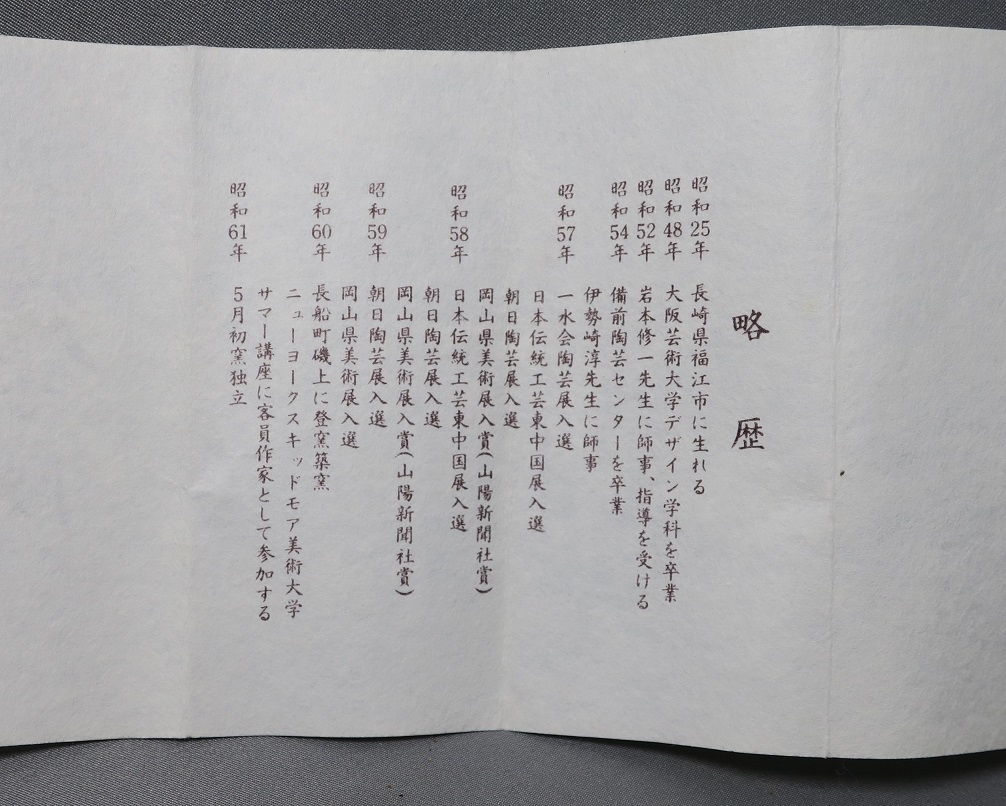 略歴
昭和25年 長崎県福江市に生れる
昭和48年 大阪芸術大学デザイン学科を卒業
昭和52年 岩本修一先生に師事、指導を受ける
昭和54年 備前陶芸センターを卒業
伊勢崎淳先生に師事
昭和57年 一水会陶芸展入選
日本伝統工芸東中国展入選
朝日陶芸展入選
岡山県美術展入賞(山陽新聞社賞)
昭和58年 日本伝統工芸東中国展入選
朝日陶芸展入選
岡山県美術展入賞(山陽新聞社賞)
昭和59年 朝日陶芸展入選
岡山県美術展入選
昭和60年 長船町磯上に登窯築窯
ニューヨークスキッドモア美術大学
サマー講座に客員作家として参加する
昭和61年 5月初窯独立